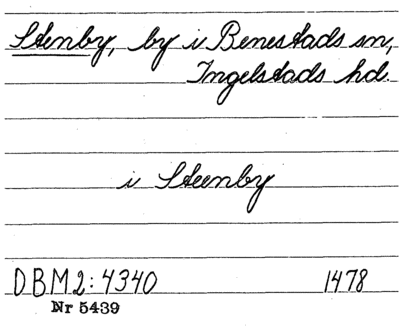 Stenby, by i Benestads sn,
Ingelstads hd.
i Steenby
DBM2:4340 1478
Nr 5439